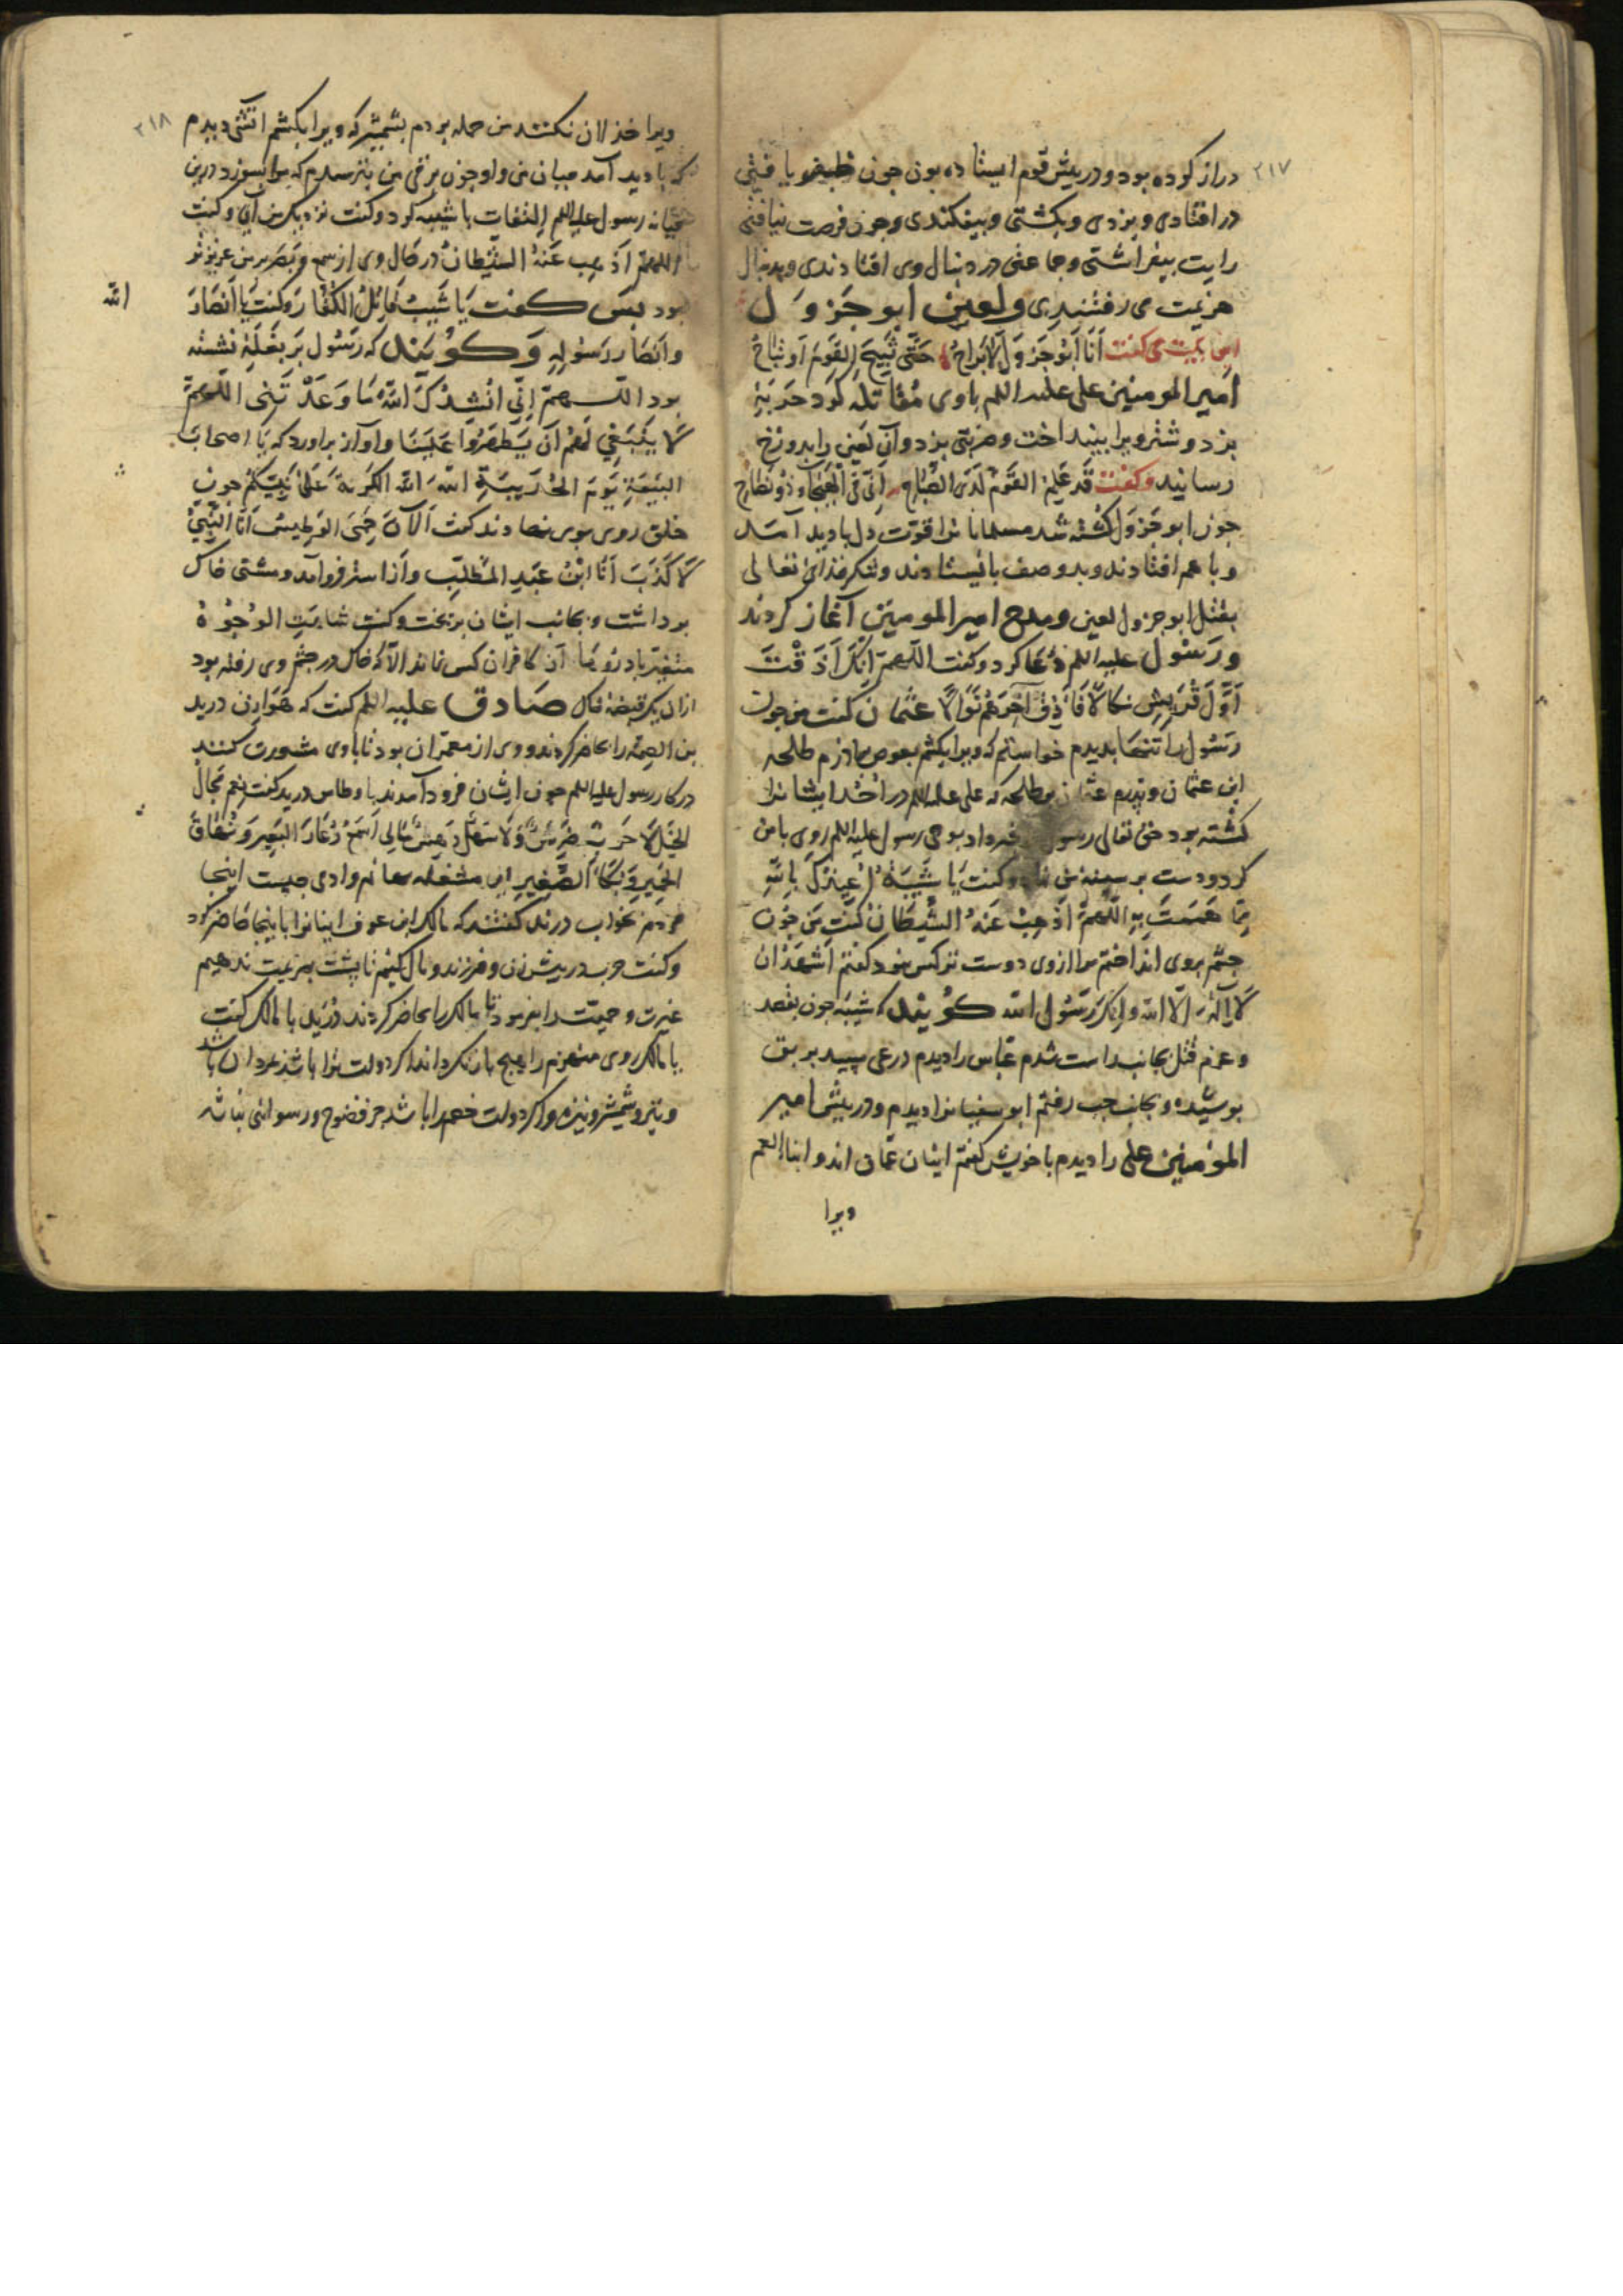 ۲۱۷
دراز کرده بود و در پیش قوم ایستاده بون جون ظفر یافتی
در افتادی و بزدی و بکشتی و بیفکندی و جون فرصت نیافتی
رایت بیفراشتی و جماعتی در دنبال وی افتادندی و بدنبال
هزیمت می رفتندی ولعین ابو جَروَل
این بیت می کفت أنا أبو جَروَل لا براح حتی نبیح القوم أو نباح
امیر المومنین علی علیه السلم باوی مُقاتله کرد حَربَةٍ
بزد و شتر ویرا بینداخت و ضربتی بزد و آن لعین را بدوزخ
رسانید وکفت قد علم القوم لدی الصباح انی فی الهیجاء ذو نطاح
جون ابو جَروَل کُشته شد مسلمانانرا قوّت دل بادید آمد
و با هم افتادند و بدو صف بایستادند و شکر خدای تعالی
بقتل ابو جرول لعین و مدح امیر المومنین آغاز کردند
و رَسُول علیه السلم دُعا کرد و کفت اللّهمّ انک أذقت
أوّل قریش نکالاً فأذق آخرهم نوالاً عثمان کفت من جون
رسُول را تنها بدیدم خواستم که ویرا بکشم بعوض مادرم طلحه
ابن عثمان و پدرم عثمان بن طلحه که علی علیه السلم در اُحُد ایشانرا
کشته بود حق تعالی رسول خبر داد بوحی رسول علیه السلم روی بامن
کرد و دست بر سینه من نهاد و کفت یا شَیبَةُ أعیذک بالله
مما هممت به اللّهمّ أذهب عنه الشیطان کفت من جون
جشم بروی انداختم مرا از وی دوست تر کس نبود کفتم اشهد ان
لا اله الّا الله و انک رسُول الله کویند که شیبه جون بقصد
و عزم قتل بجانب راست شدم عبّاس را دیدم درعی سپید بر بق
بوشیده و بجانب جب رفتم ابو سفیانرا دیدم و در پیش امیر
المؤمنین علی را دیدم با خویش کفتم ایشان عمّان اند و ابنا العم
ویرا
۲۱۸
ویرا خذلان نکنند من حمله بردم بشمشیر که ویرا بکشم اتشی دیدم
که بادید آمد میان من و او جون برقی من بترسیدم که مرا بسوزد درین
میانه رسول علیه السلم التفات با شیبه کرد و کفت نزدیک من آی و کفت
اللهمّ اذهب عنه الشیطان در حال وی از سمع و بصر بر من عزیز تر
بود بس کفت یا شیب قاتل الکفار و کفت یا أنصار
الله
و أنصار رسوله وکویند که رسُول بر بغلة نشسته
بود اللّهمّ إنّی أنشدک الله ما وعدتنی اللّهمّ
لا ینبغی لهم أن یظهروا علینا و آواز براورد که یا اصحاب
البیعة یوم الحدیبیة الله الله الکرّة علی نبیّکم جون
خلق روی بوی نهادند کفت الآن حمی الوطیس أنا النبیّ
لا کذب أنا ابن عبد المطّلب و از استر فرو آمد و مشتی خاک
برداشت و بجانب ایشان بریخت و کفت شاهت الوجُوهُ
متغیّر باد رویها آن کافران کس نماند الّا که خاک در جشم وی رفته بود
ازان یک قبضه خاک صادق علیه السلم کفت که هوازن درید
بن الصمّه را حاضر کردند و وی از معمّران بود تا باوی مشورت کنند
در کار رسول علیه السلم جون ایشان فرود آمدند باوطاس درید کفت نعم مجال
الخیل لا حزن ضرس و لا سهل دهس مالی اسمع رُغاء البعیر و نهاق
الحمیر و بکاء الصغیر این مشغله بهائم و آدمی جیست اینجا
مردم بجواب درید کفتند که مالک ابن عوف اینانرا باینجا حاضر کرد
و کفت حرب در پیش زن و فرزند و مال کنیم تا پشت بهزیمت ندهیم
غیرت و حمیّت را بفرمود تا مالک را حاضر کردند درید با مالک کفت
یا مالک روی منهزم را هیچ باز نکرداند اکر دولت ترا باشد بمردان باشد
و بتیر و شمشیر و نیزه و اکر دولت خصم را باشد جز فضوح و رسوائی نباشد